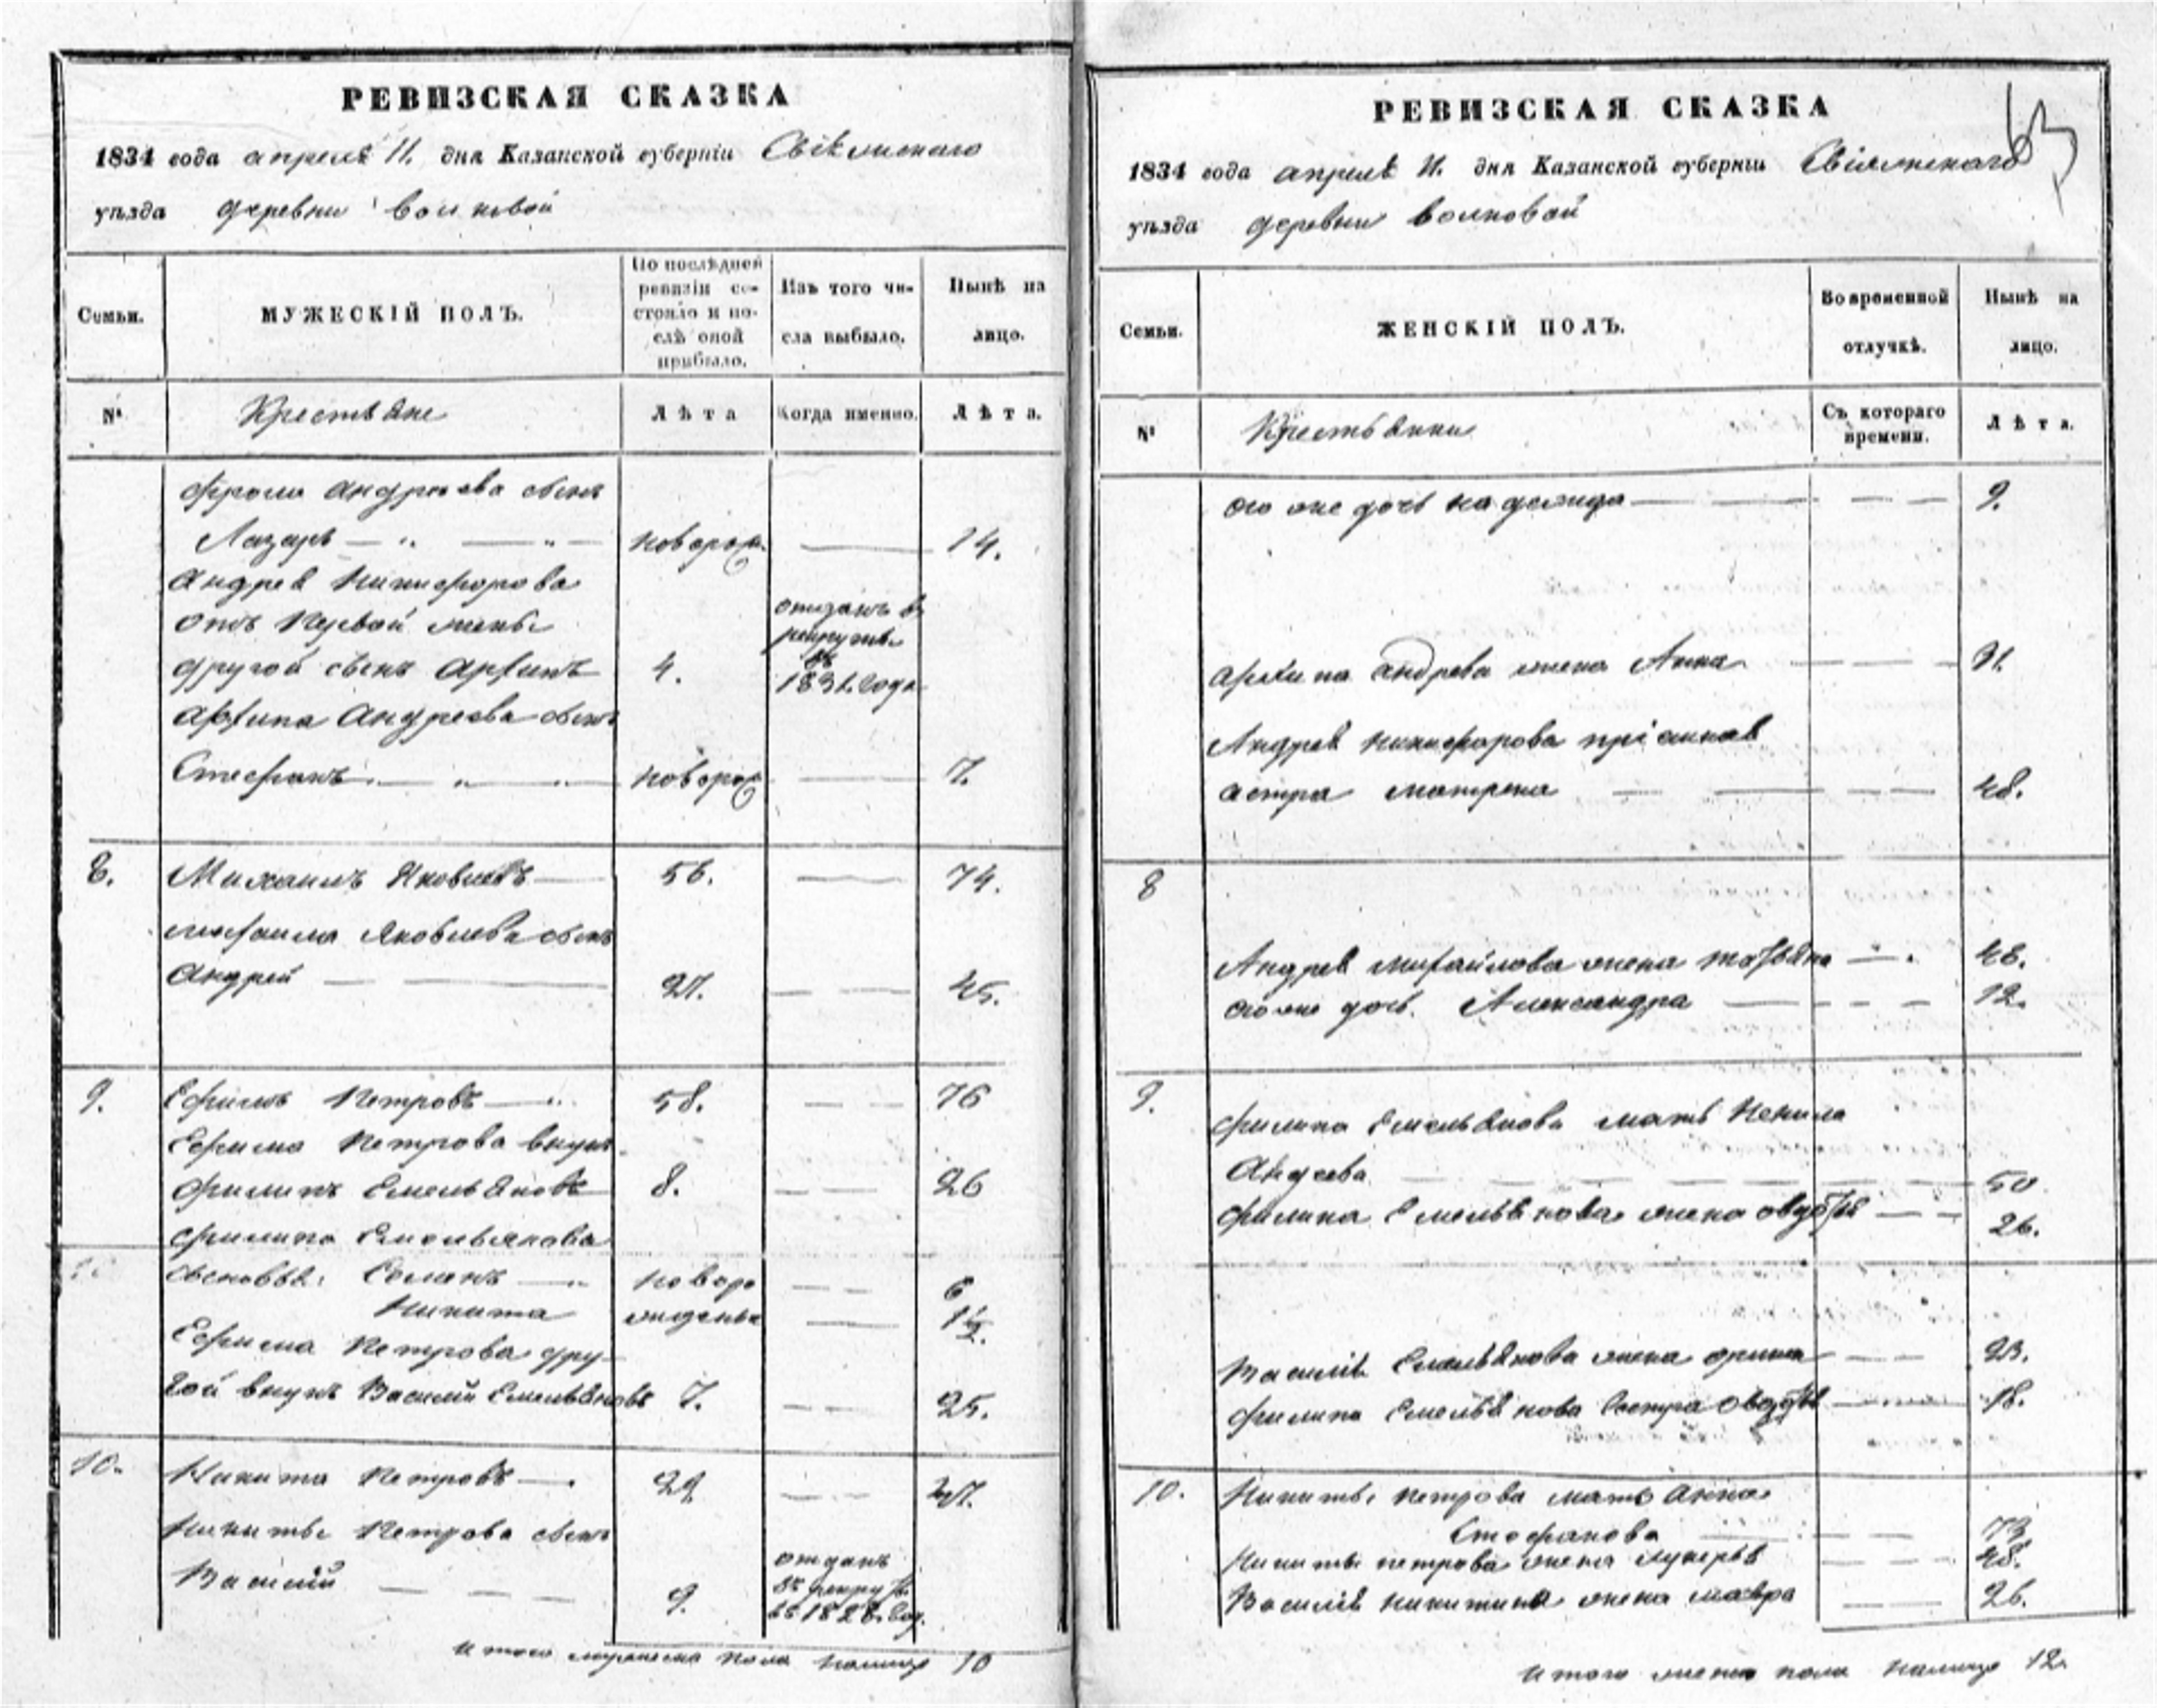 РЕВИЗСКАЯ СКАЗКА
1834 года апреля 11. дня Казанской губерніи Свіяжскаго
уѣзда деревни Волковой
Семьи.
МУЖЕСКІЙ ПОЛЪ.
По послѣдней ревизіи состояло и послѣ оной прибыло.
Изъ того числа выбыло.
Нынѣ на лицо.
№
Крестьяне
Лѣта
Когда именно.
Лѣта.
Фрола Андреева сынъ
Лазарь новорож. 14.
Андрея Никифорова
отъ первой жены
другой сынъ Архипъ 4. отданъ в рекруты въ 1831. года
Архипа Андреева сынъ
Стефанъ новорож 7.
8. Михаилъ Яковлевъ 56. 74.
михаила Яковлева сынъ
Андрей 27. 45.
9. Ефимъ Петровъ 58. 76
Ефима Петрова внукъ
Филипъ Емельяновъ 8. 26
Филипа Емельянова
сыновья: Семенъ новоро 6
Никита жденные 1 1/2.
Ефима Петрова дру-
гой внукъ Василий Емельяновъ 7. 25.
10. Никита Петровъ 29. 47.
Никиты Петрова сынъ
Василий 9. отданъ въ рекруты въ 1828. год.
Итого мужеска пола налицо 10
РЕВИЗСКАЯ СКАЗКА
63
1834 года апреля 11. дня Казанской губерніи Свіяжскаго
уѣзда деревни Волковой
Семьи.
ЖЕНСКІЙ ПОЛЪ.
Во временной отлучкѣ.
Нынѣ на лицо.
№
Крестьянки
Съ котораго времени.
Лѣта.
его же дочь надежда 9.
Архипа андрева жена Анна 31.
Андрея никифорова пріемная
сестра матрена 48.
8
Андрея михайлова жена татьяна 48.
его же дочь. Александра 12.
9. Филипа Емельянова мать Ненила
Андеева 50
Филипа Емельянова жена овдотья 26.
Василія Емельянова жена орина 23.
Филипа Емельянова сестра овдотья 18.
10. Никиты петрова мать Анна
Стефанова 73
Никиты петрова жена лукерья 48.
Василія никитина жена мавра 26.
Итого женска пола налицо 12.